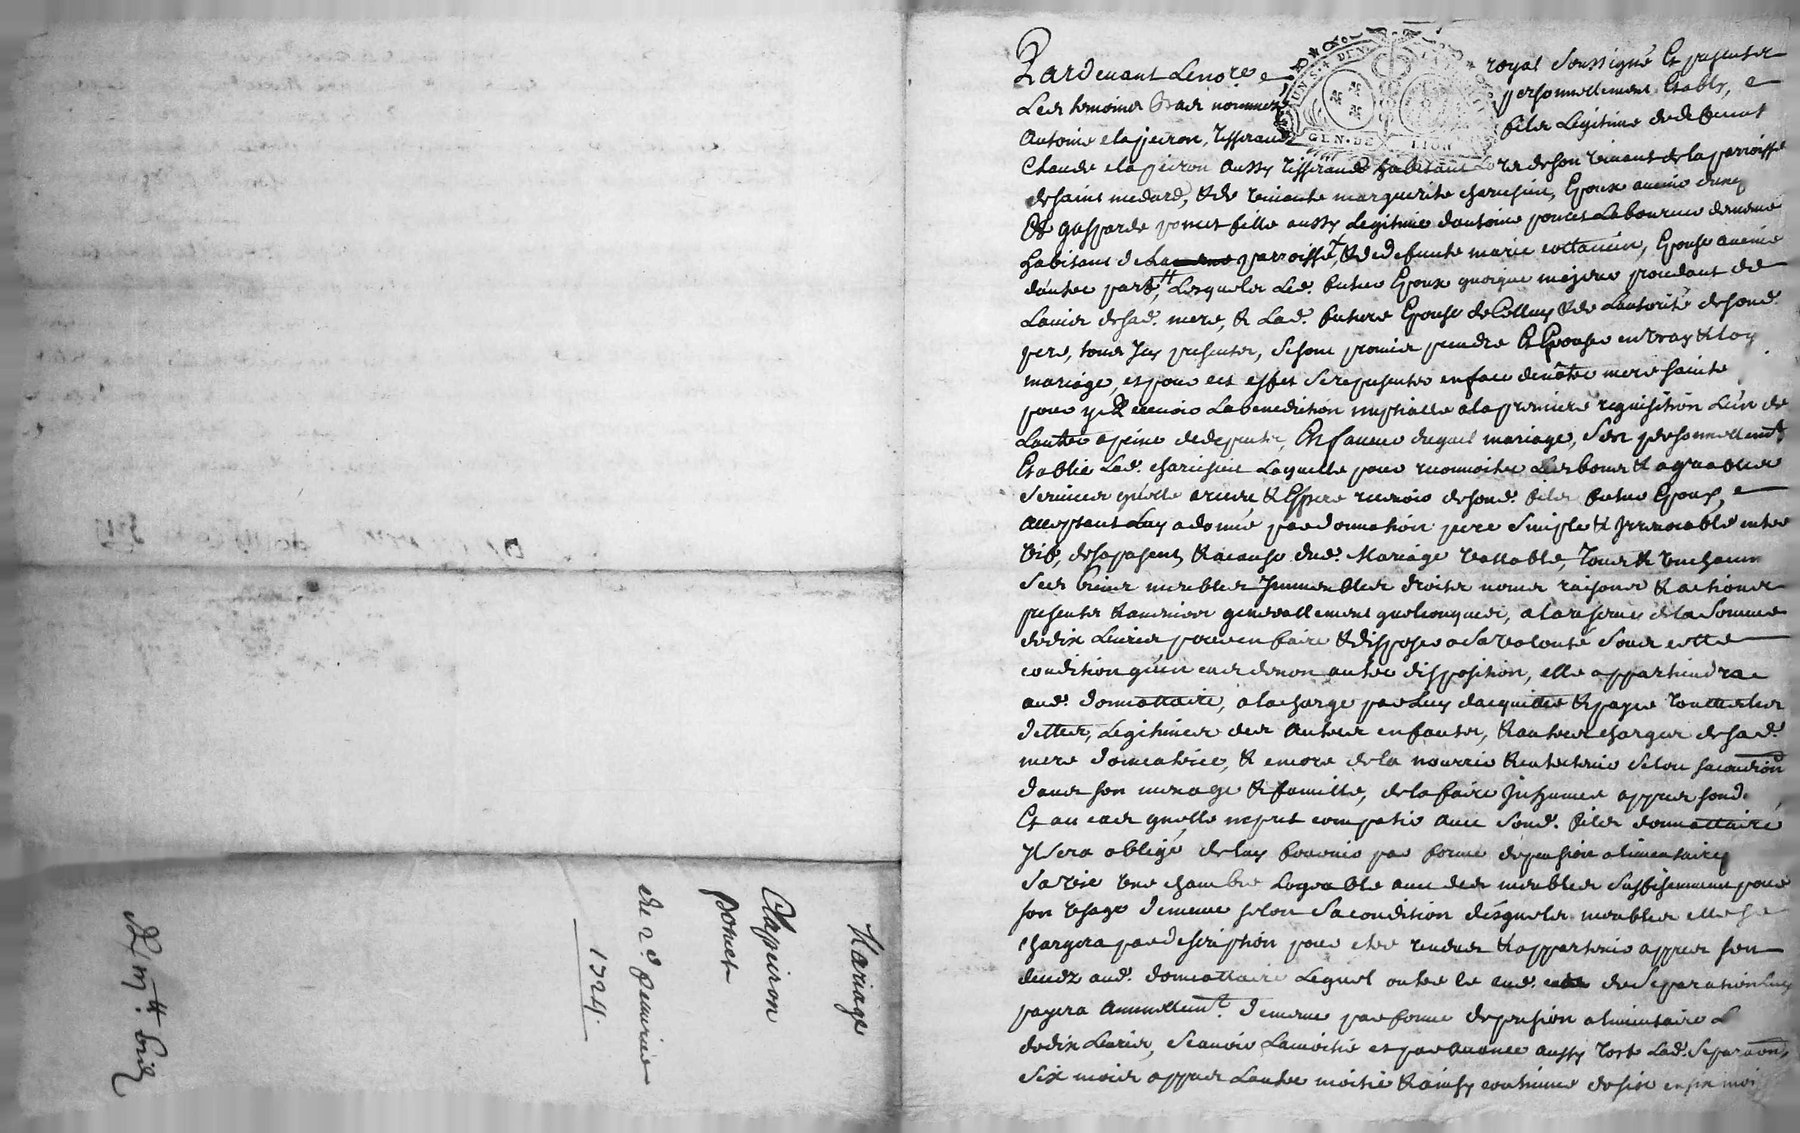 Mariage
Clapeiron
Poncet
du 2.e feuvrier
1724.
Pardevant Le no.re royal Soussigné Et presenter
Les temoins bas nommes personnellement Establi,
Antoine clapeiron, tisserand fils Legitime de deffunt
Claude clapeiron aussy tisserand habitant de son vivant de la parroisse
de saint medard, & de vivante marguerite charuhin, Epoux avenir d'une
Et gasparde poncet fille aussy Legitime d'antoine poncet Laboureur
habitant de La parroisse, & de deffunte marie, Epouse avenir
d'autre part, Lesquels Led. futur Epoux quoique majeur procedant de
Lavis de sad. mere, & Lad. future Epouse de Celluy & de Lautorité de sond.
pere, tous Jcy presents, se sont promis prendre Et Epouser en vray & loy
mariage, et pour cet effet se representer en face de nôtre mere sainte
pour y recevoir La benediction nuptialle a la premiere requisition L'un de
Lautre a peine de depents, En faveur duquel mariage, s'est personnellem.t
Establie Lad. charuhin Laquelle pour reconnoitre Les bons & agreables
services qu'elle a receu & Espere recevoir de sond. fils futur Epoux,
acceptant Luy a donné par donnation pure simple & Jrrevocable entre
vifs, des a present, & a cause dud. Mariage vallable, tous & un chacun
ses biens meubles Jmmeubles droits noms raisons & actions
presents & avenir generallement quelconques, a la reserve de la somme
de dix Livres pour en faire & disposer a sa volonté sous cette
condition qu'en cas de non autre disposition, elle appartiendra
aud. donnattaire, a la charge par Luy d'acquitter & payer touttes les
dettes, Legitimes des autres enfants, & autres charges de sad.
mere donnatrice, & encore de la nourrir & entretenir selon sa condition
dans son menage & famille, de la faire Jnhumer apres son d.
Et au cas qu'elle ne put compatir avec Sond. fils donnattaire
Jl sera obligé de luy fournir par forme de pension alimentaire
sa vie une chambre Logeable avec des meubles suffisemment pour
son usage d'iceux selon sa condition desquels meubles elle se
chargera par description pour etre rendus & appartenir apres son
decez aud. donnattaire Lequel outre ce aud. cas de separation Luy
payera annuellem.t d'meme par forme de pension alimentaire L
de dix Livres, Scavoir La moitié et par avance aussy tost Lad. Separation,
Six mois apres Lautre moitié & ainsy continuer de six en six mois